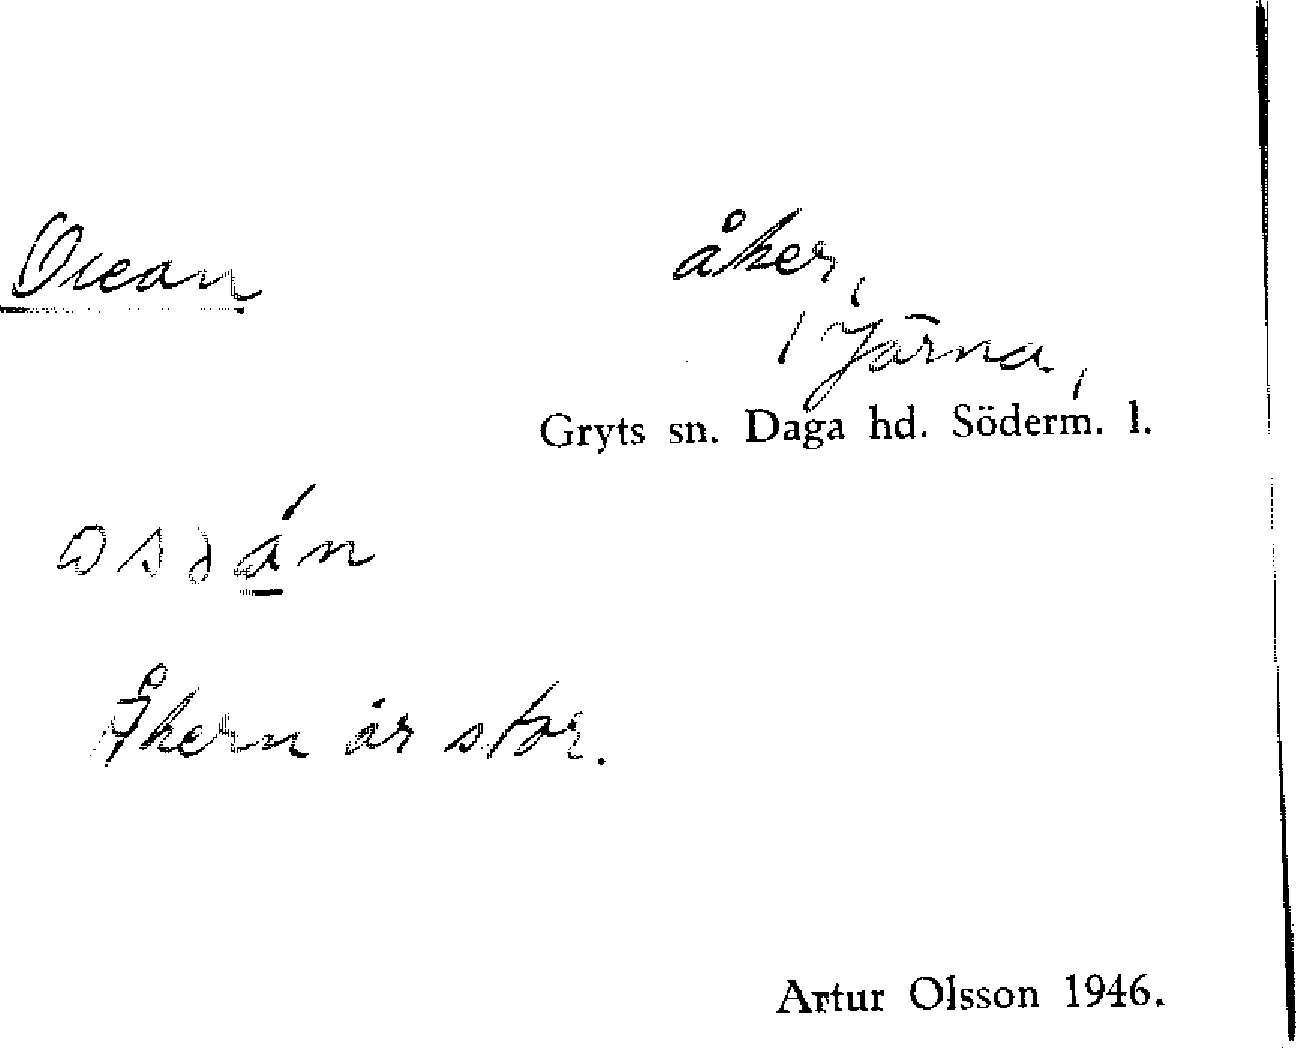 Ocean åker,
1 Järna,
Gryts sn. Daga hd. Söderm. l.
Åkern är stor.
Artur Olsson 1946.